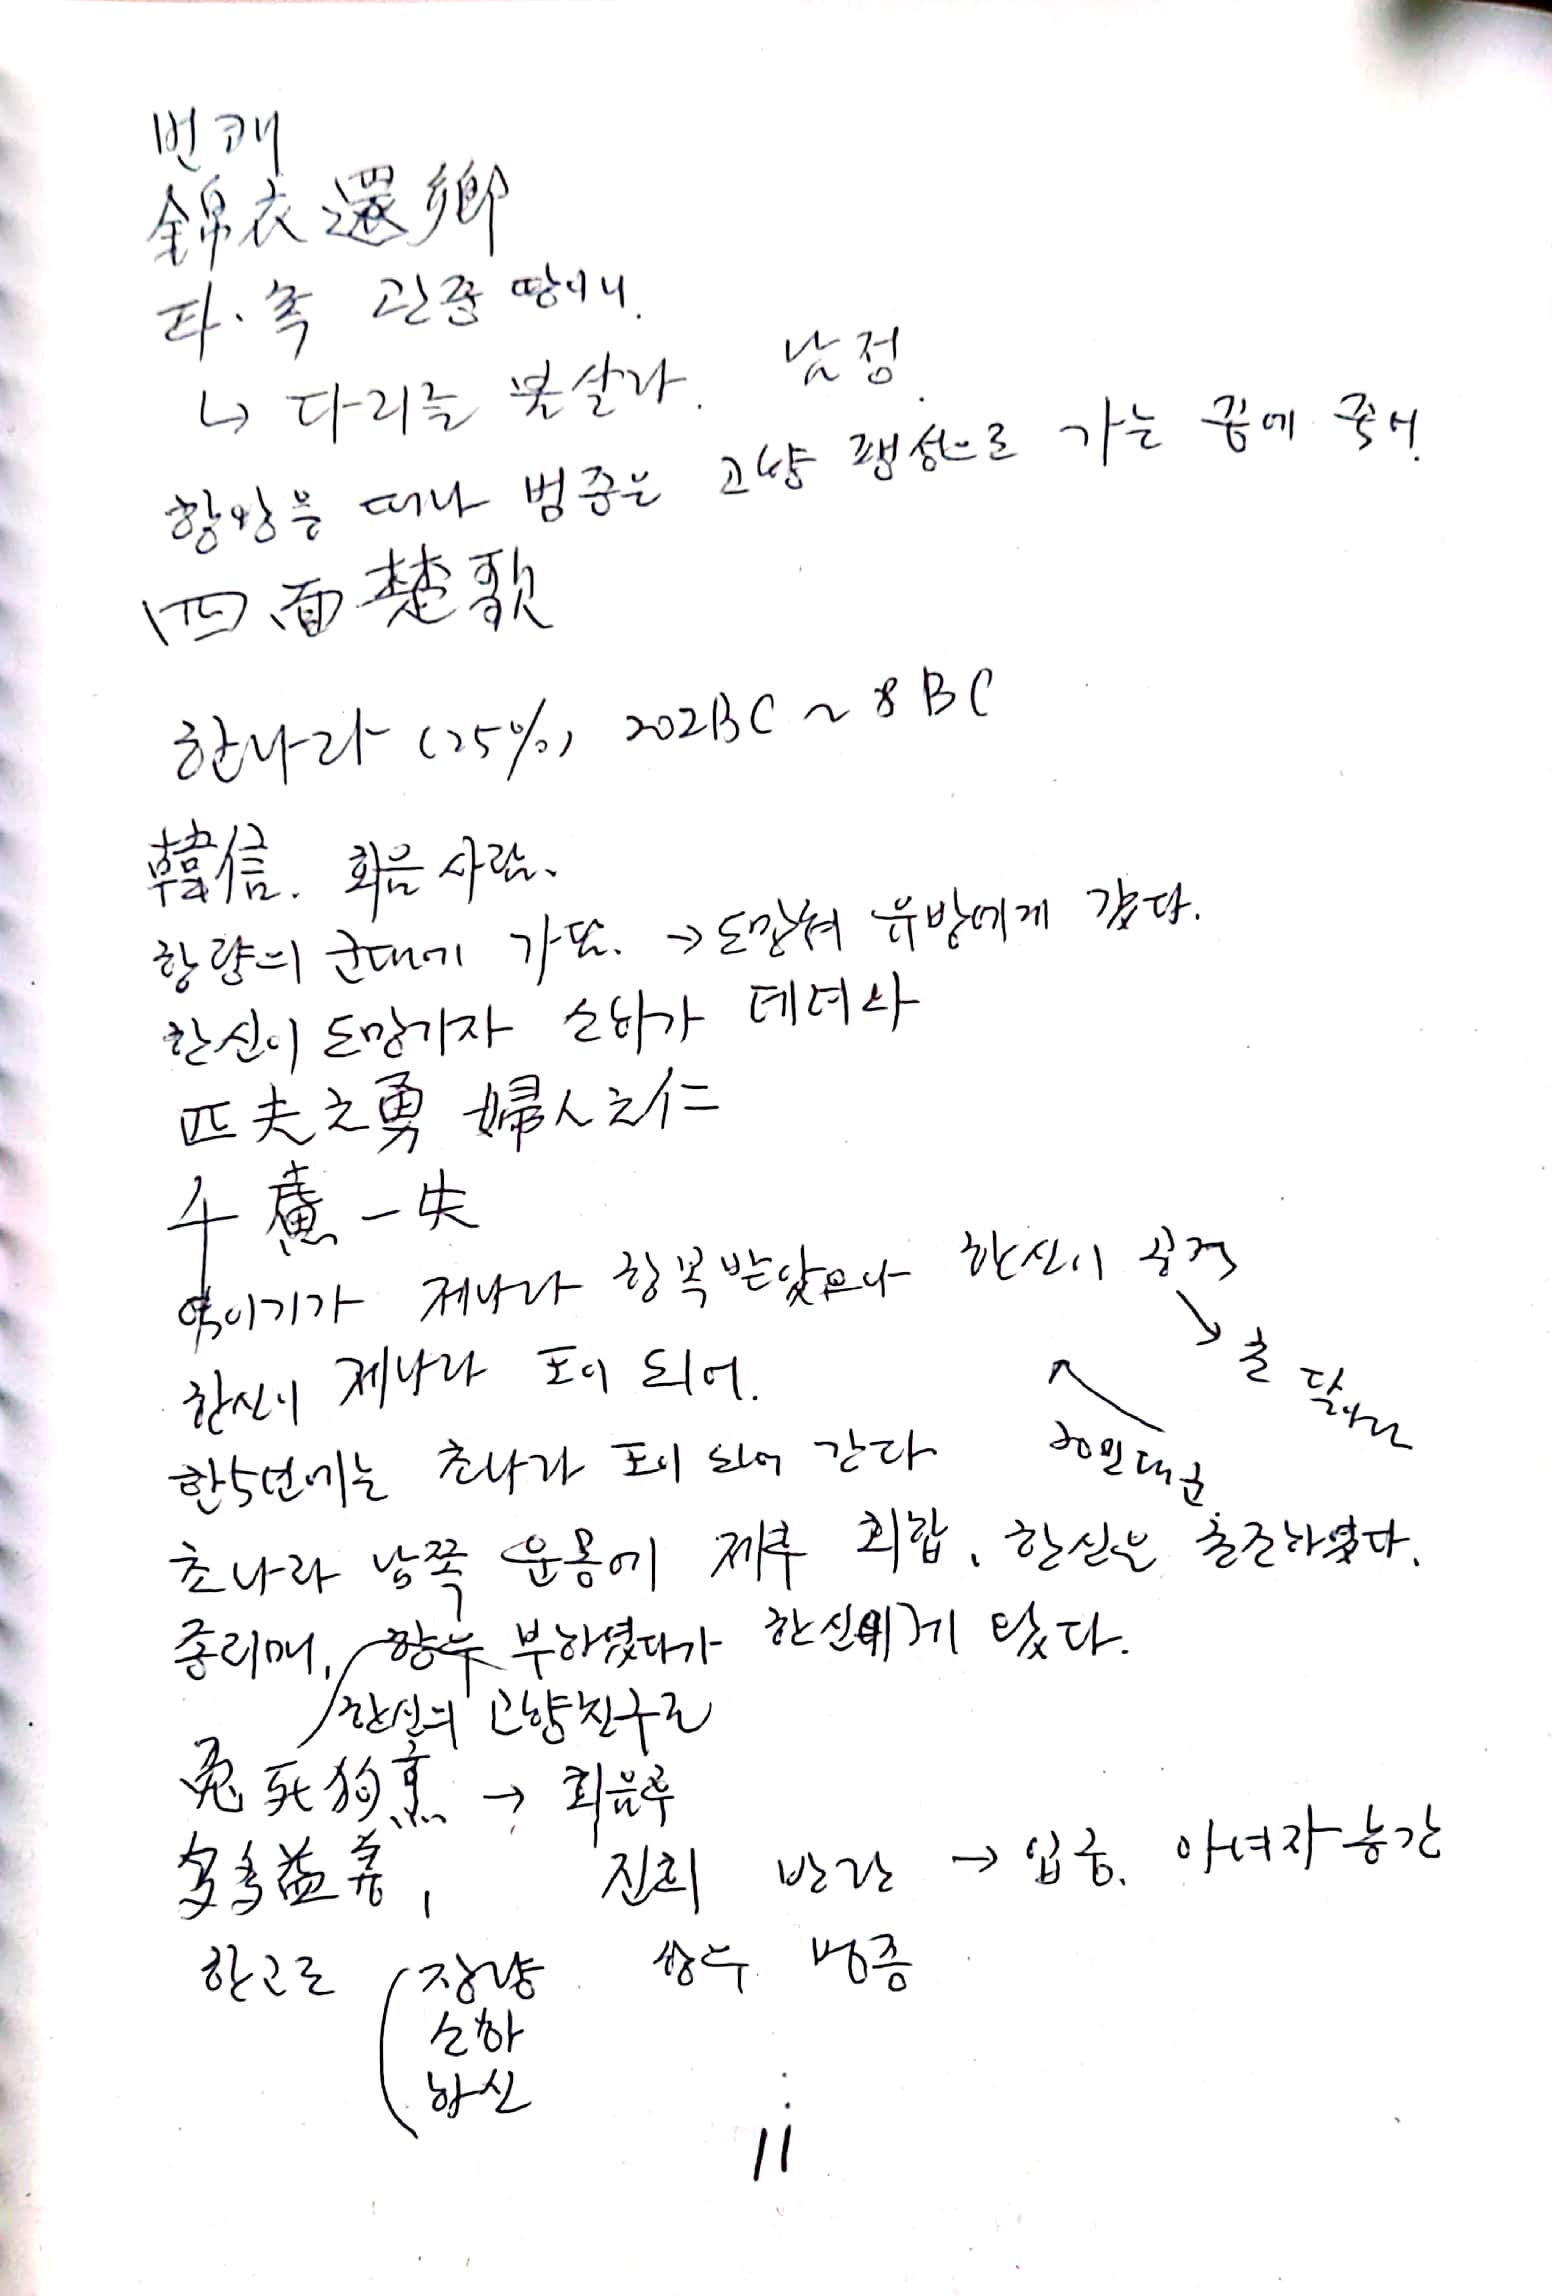 번쾌
錦衣還鄕
파·촉 관중 땅에서.
↳ 다리를 불살라. 남정.
항왕을 떠나 범증은 고향 팽성으로 가는 꿈에 죽어.
四面楚歌
한나라 (25%) 202BC ~ 8BC
韓信. 회음 사람.
항량의 군대에 가담. → 도망쳐 유방에게 갔다.
한신이 도망가자 소하가 데려와
匹夫之勇 婦人之仁
千慮一失
역이기가 제나라 항복 받았으나 한신이 공격
한신이 제나라 왕이 되어. ↘ 초 달아나
한5년에는 초나라 왕이 되어 간다 30만대군
초나라 남쪽 운몽에 제후 회합, 한신은 출전하였다.
종리매, 항우 부하였다가 한신에게 왔다.
한신의 고향친구로
兎死狗烹 → 회음후
多多益善, 진희 반란 → 입궁. 아녀자 농간
한고조 장량 항우 범증
소하
한신
11